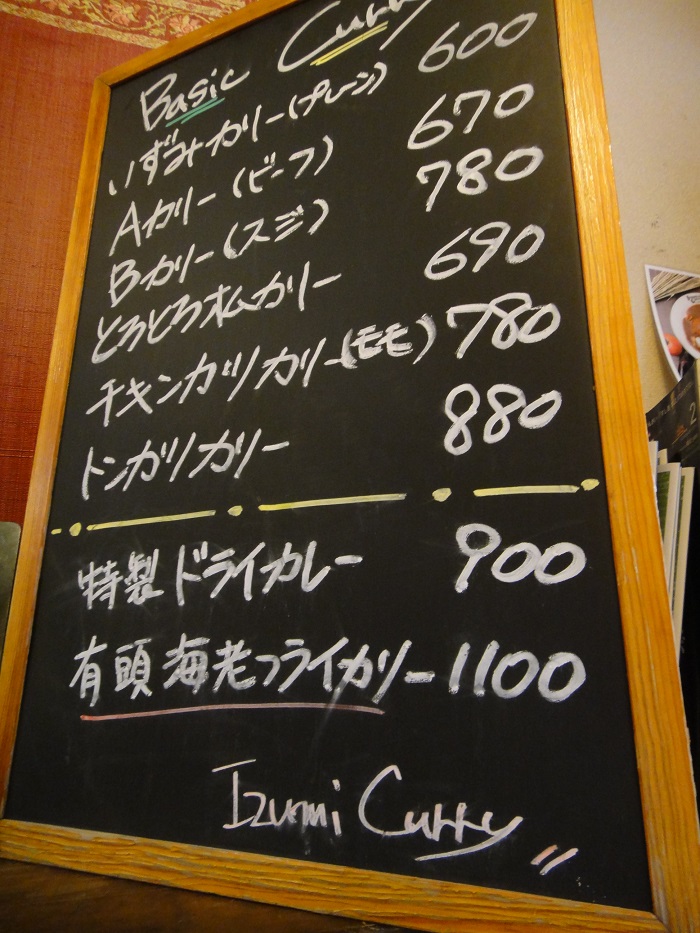 Basic Curry
いずみカリー(プレーン) 600
Aカリー(ビーフ) 670
Bカリー(スジ) 780
とろとろオムカリー 690
チキンカツカリー(モモ) 780
トンカツカリー 880
特製ドライカレー 900
有頭海老フライカリー 1100
Izumi Curry